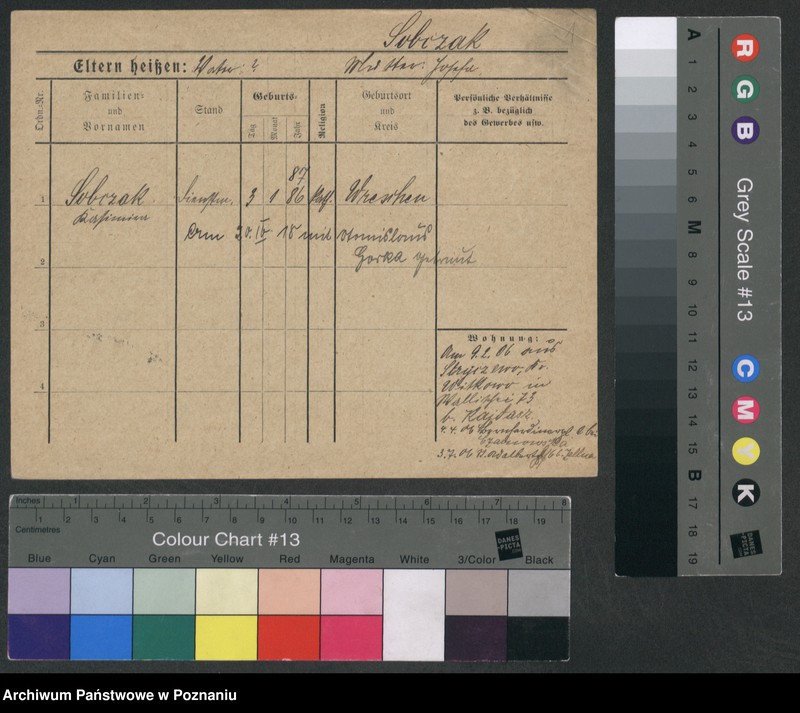 Sobczak
Eltern heißen: Vater: ? Mutter: Josefa
Ordn.-Nr.
Familien- und Vornamen
Stand
Geburts-
Tag
Monat
Jahr
Religion
Geburtsort und Kreis
Persönliche Verhältnisse z. B. bezüglich des Gewerbes usw.
87
1 Sobczak Dienstm. 3 1 86 kath. Wreschen
Kasimira
Am 20. IV 15 mit Stanislaus
2 Gorka getraut
3
4
Wohnung:
Am 9.2.06 aus
Kr.
Witkowo in
Wallischei 73
b.
4.4.06
3.7.06
Inches 1 2 3 4 5 6 7 8
1 2 3 4 5 6 7 8 9 10 11 12 13 14 15 16 17 18 19
Centimetres
Colour Chart #13
DANES-PICTA.COM
Blue Cyan Green Yellow Red Magenta White 3/Color Black
R G B
Grey Scale #13
C M Y K
DANES-PICTA.COM
A 1 2 3 4 5 6 M 8 9 10 11 12 13 14 15 B 17 18 19
Archiwum Państwowe w Poznaniu